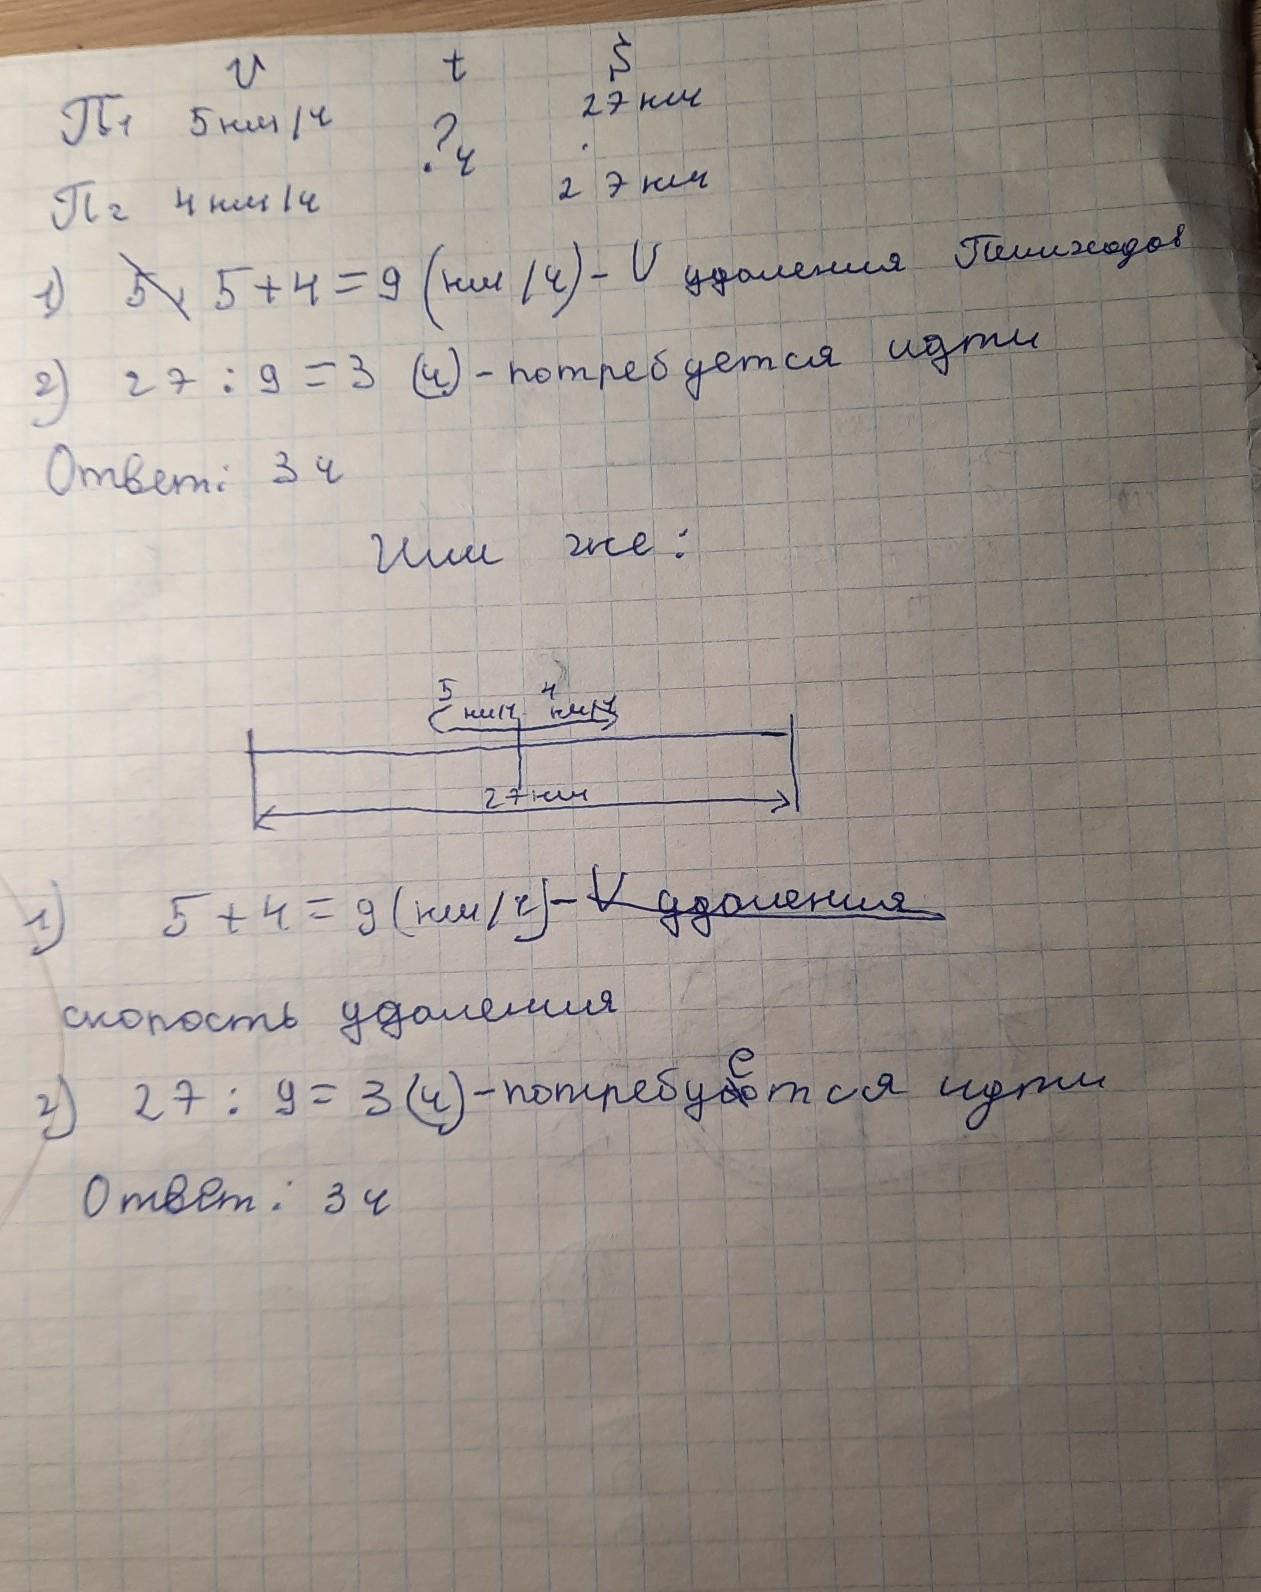 V t S
П1 5 км/ч ? ч 27 км
П2 4 км/ч 27 км
1) 5, 5+4=9 (км/ч)-V удаления Пешеходов
2) 27:9=3 (ч)-потребуется идти
Ответ: 3 ч
Или же:
5 км/ч 4 км/ч
27 км
1) 5+4=9 (км/ч)-V удаления
скорость удаления
2) 27:9=3(ч)-потребуется идти
Ответ: 3 ч